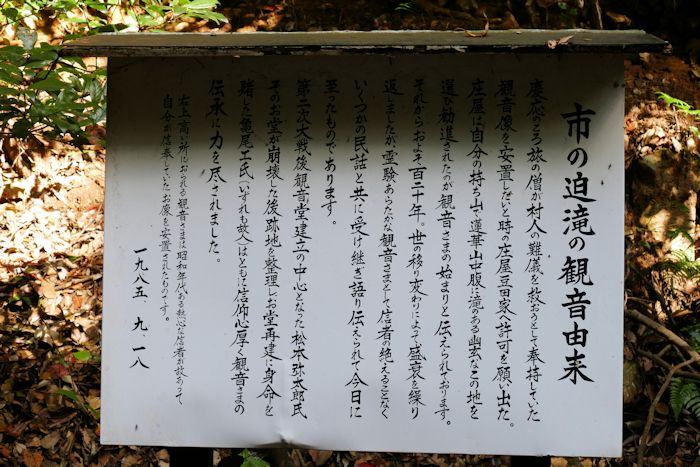 市の迫滝の観音由来
慶応のころ旅の僧が村人の難儀を救おうとして奉持していた
観音像を安置したいと時の庄屋豆田家へ許可を願い出た。
庄屋は自分の持ち山で蓮華山中腹に滝のある幽玄なこの地を
選び勧進されたのが観音さまの始まりと伝えられております。
それからおよそ百二十年。世の移り変わりによって盛衰を繰り
返しましたが、霊験あらたかな観音さまとして信者の絶えることなく
いくつかの民話と共に受け継ぎ語り伝えられて今日に
至ったものであります。
第二次大戦後観音堂建立の中心となった松本弥太郎氏
そのお堂が崩壊した後跡地を整理しお堂再建へ身命を
賭した亀尾工氏(いずれも故人)はともに信仰心厚く観音さまの
伝承に力を尽されました。
右上高い所におられる観音さまは昭和年代ある熱心な信者が故あって
自分が信奉していたお像を安置されたものです。
一九八五、九、一八